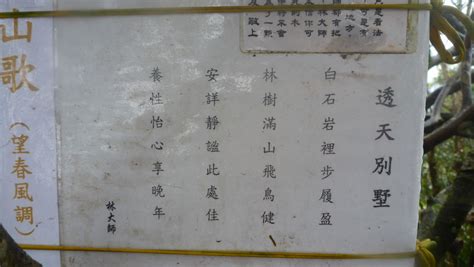 透天別墅
白石岩裡步履盈
林樹滿山飛鳥健
安詳靜謐此處佳
養性怡心享晚年
林大師
山歌
（望春風調）